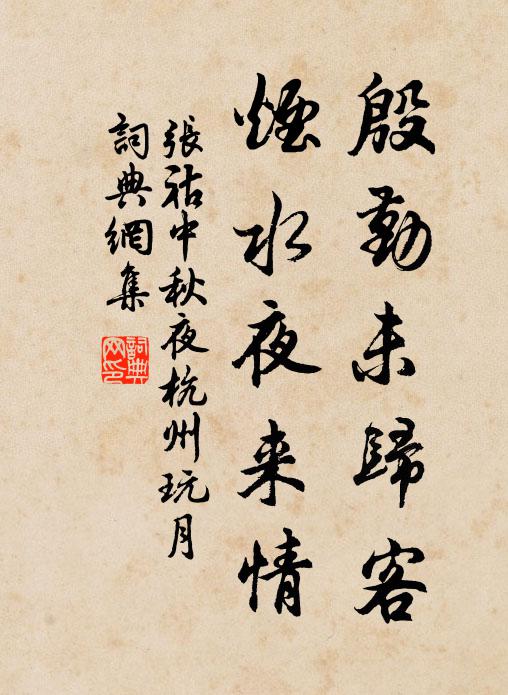 殷勤未歸客
煙水夜来情
張祜中秋夜杭州玩月
詞典網集
詞典網印